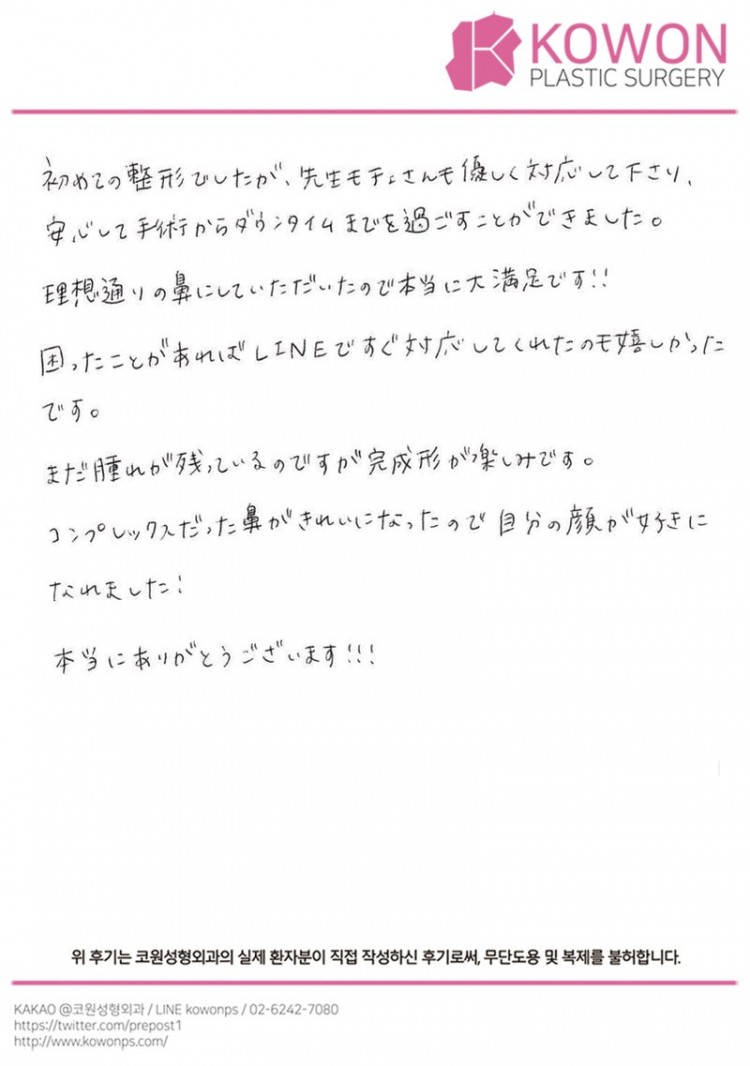 KOWON
PLASTIC SURGERY
初めての整形でしたが、先生もチョさんも優しく対応して下さり、
安心して手術からダウンタイムまでを過ごすことができました。
理想通りの鼻にしていただいたので本当に大満足です!!
困ったことがあればLINEですぐ対応してくれたのも嬉しかった
です。
まだ腫れが残っているのですが完成形が楽しみです。
コンプレックスだった鼻がきれいになったので自分の顔が好きに
なれました!
本当にありがとうございます!!!
위 후기는 코원성형외과의 실제 환자분이 직접 작성하신 후기로써, 무단도용 및 복제를 불허합니다.
KAKAO @코원성형외과 / LINE kowonps / 02-6242-7080
https://twitter.com/prepost1
http://www.kowonps.com/